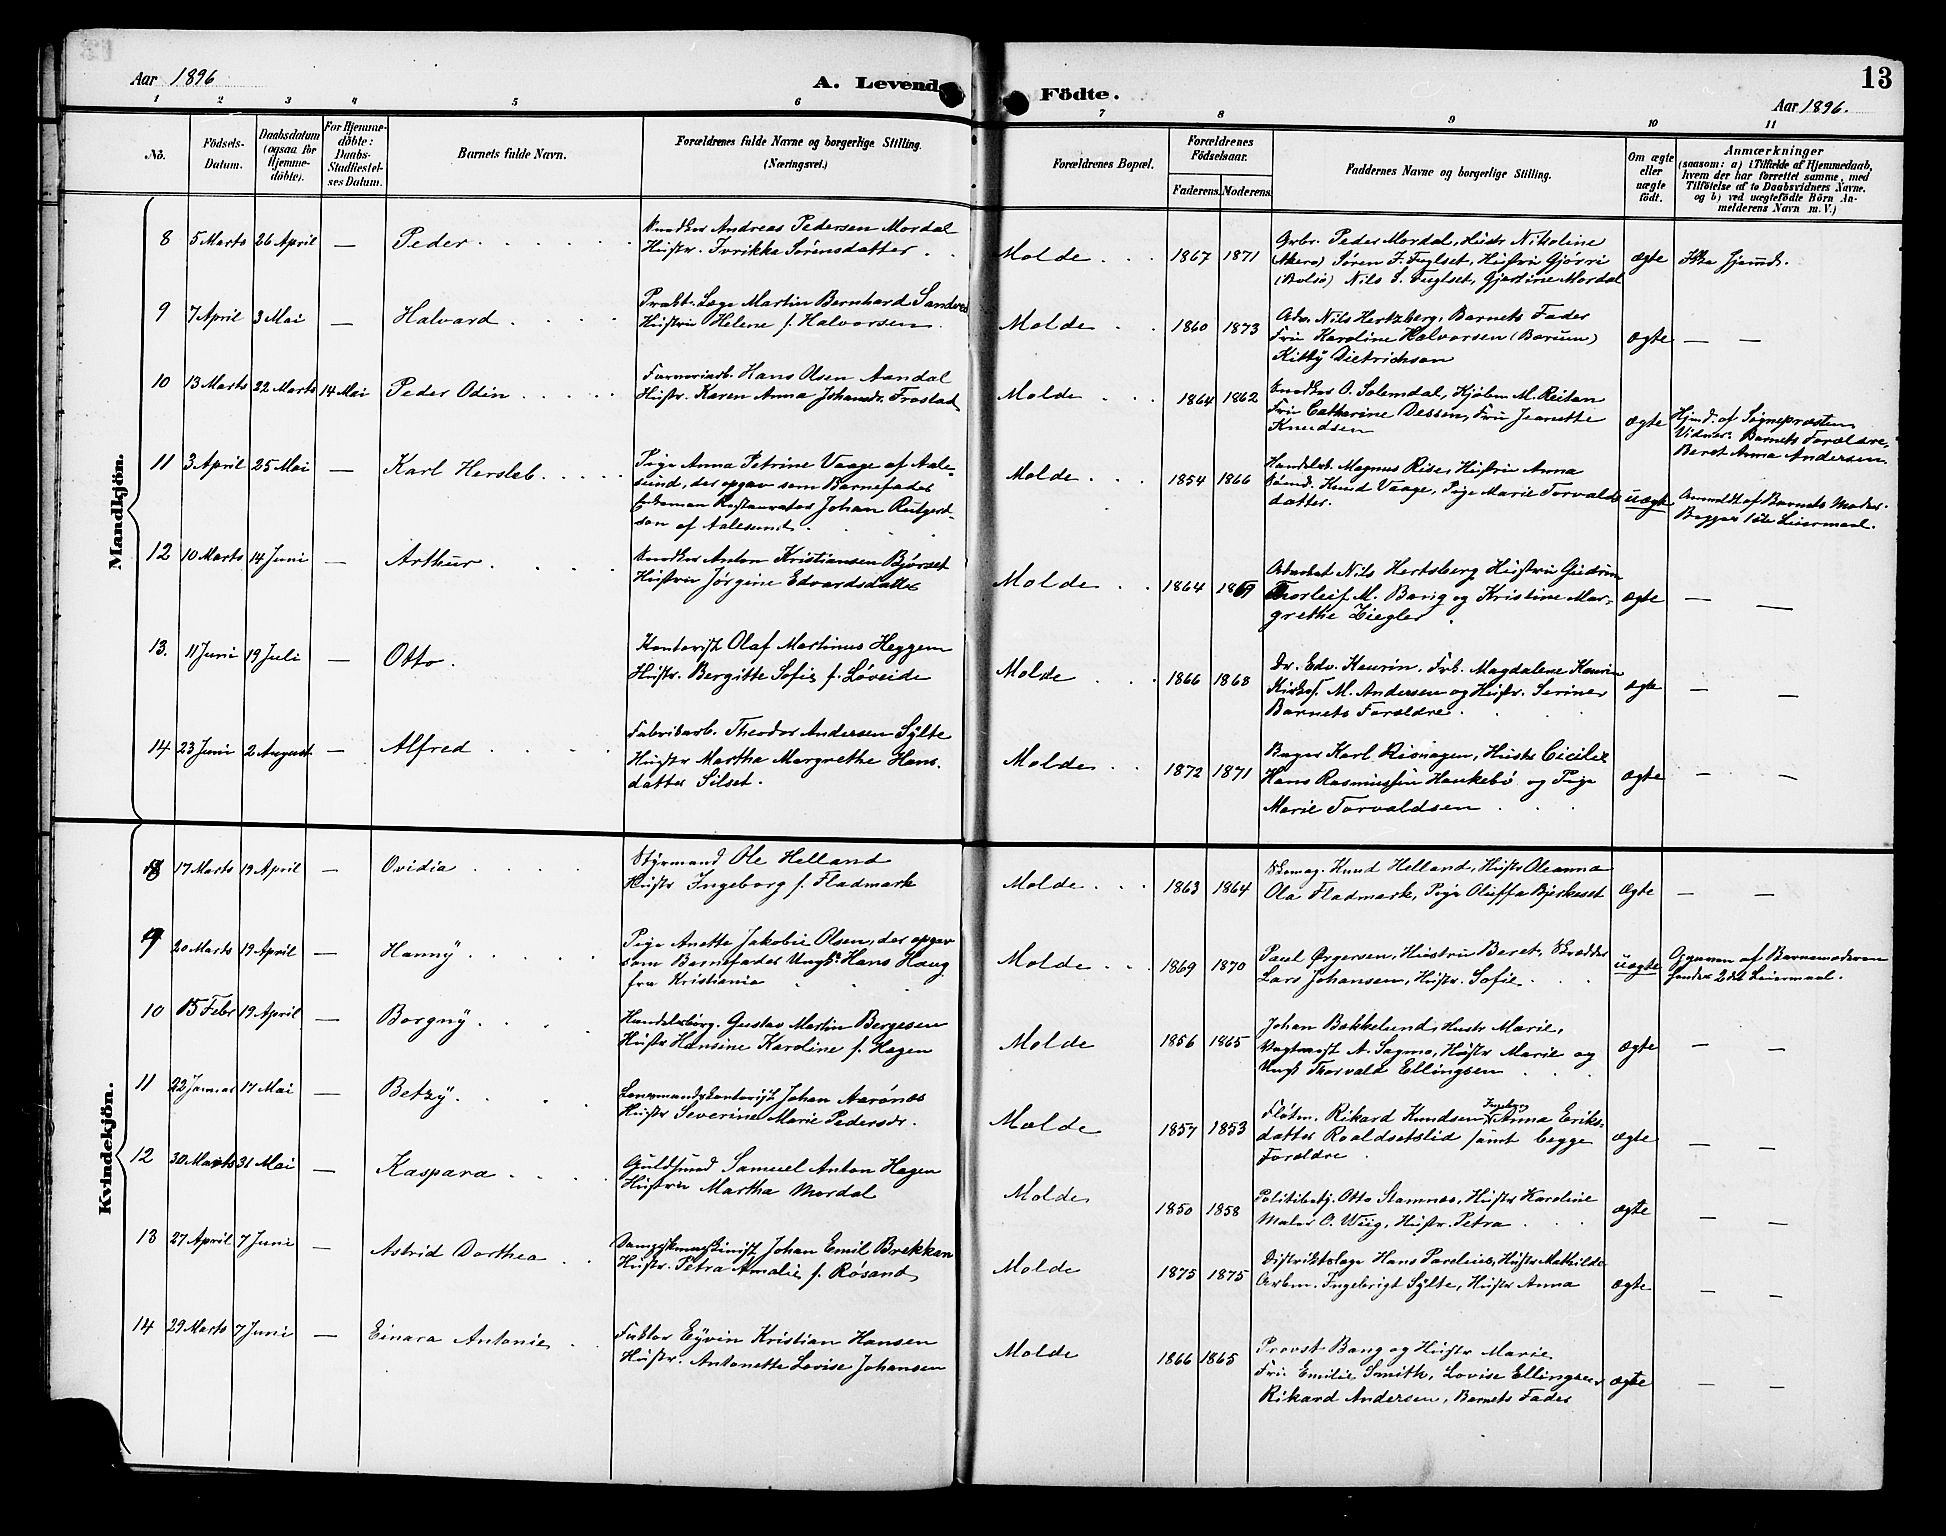 Aar 1896
A. Levende
Födte.
13
Aar 1896.
1 2 3 4 5 6 7 8 9 10 11
No.
Födsels-
Datum.
Daabsdatum
(ogsaa for
Hjemme-
döbte).
For Hjemme-
döbte:
Daabs-
Stadfæstel-
ses Datum.
Barnets fulde Navn.
Forældrenes fulde Navne og borgerlige Stilling.
(Næringsvei.)
Forældrenes Bopæl.
Forældrenes
Födselsaar.
Faderens. Moderens.
Faddernes Navne og borgerlige Stilling.
Om ægte
eller
uægte
födt.
Anmærkninger
(saasom: a) i Tilfælde af Hjemmedaab,
hvem der har forrettet samme, med
Tilföielse af to Daabsvidners Navne.
og b) ved uægtefödte Börn An-
melderens Navn m. V.)
Mandkjön.
8 5 Marts 26 April — Peder
Snedker Andreas Pedersen Mordal
Hustr. Ivrikka Sørensdatter
Molde 1867 1871
Grbr. Peder Mordal, Hustr Nikoline
(Akerø) Søren J. Fuglset, Hustru Gjørri
(Bolsø) Nils S. Fuglset, Gjertine Mordal
ægte
Ikke hjemd.
9 7 April 3 Mai — Halvard
Prakt. Læge Martin Bernhard Sandved
Hustru Helene f. Halvorsen
Molde 1860 1873
Adv. Nils Hertzberg, Barnets Fader
Fru Karoline Halvorsen (Bærum)
Kitty Dietrichson
ægte — —
10 13 Marts 22 Marts 14 Mai Peder Odin
Farveriarb. Hans Olsen Aandal
Hustr. Karen Anna Johansdr. Frostad
Molde 1864 1862
Snedker O. Solemdal, Kjøbm M. Reitan
Fru Catharine Dessen, Fru Jeanette
Knudsen
ægte
Hjmd. af Sognepræsten
Vidner: Barnets Forældre,
Beret Anna Andersen.
11 3 April 25 Mai — Karl Hersleb
Pige Anna Petrine Vaage af Aale-
sund, der opgav som Barnefader
Enkeman Restauratør Johan Rutgerd-
son af Aalesund
Molde 1854 1866
Handelsb. Magnus Rise, Hustru Anna
Sømd. Knud Vaage, Pige Marie Torvalds
datter.
uægte
Anmeldt af Barnets Moder.
Begges 1ste Leiermaal.
12 10 Marts 14 Juni — Arthur
Snedker Anton Kristiansen Bjørset
Hustru Jørgine Edvardsdatter
Molde 1864 1869
Advokat Nils Hertsberg Hustru Gudrun
Thorleif M. Bang og Kristine Mar-
grethe Ziegler
ægte — —
13. 11 Juni 19 Juli — Otto.
Kontorist Olaf Martinus Heggem
Hustr. Bergitte Sofie f. Løveide
Molde 1866 1868
Dr. Edv. Kaurin, Frk. Magdalene Kaurin
M. Andersen og Hustr. Serine,
Barnets Forældre.
ægte — —
14 23 Juni 2 August — Alfred
Fabrikarb. Theodor Andersen Sylte
Hustr Martha Margrethe Hans-
datter Silset.
Molde 1872 1871
Bager Karl Risnagen, Hustr Cicilie
Hans Rasmussen Haukebø og Pige
Marie Torvaldsen
ægte — —
Kvindekjön.
8 17 Marts 19 April — Ovidia
Styrmand Ole Helland
Hustr Ingeborg f. Fladmark
Molde 1863 1864
Skomag. Knud Helland, Hustr Oleanna
Ola Fladmark, Pige Oluffa Bjerkeset
ægte — —
9 20 Marts 19 April — Hanny
Pige Anette Jakobie Olsen, der opgav
som Barnefader Ungk. Hans Haug
fra Kristiania
Molde 1869 1870
Paul Ørgersen, Hustru Beret, Skrædder
Lars Johansen, Hustr. Sofie
uægte
Opgaven af Barnemoderen
hendes 2det Leiermaal.
10 15 Febr 19 April — Borgny
Handelsborg. Gustav Martin Bergesen
Hustr Hansine Karoline f. Hagen
Molde 1856 1865
Johan Bakkelund, Hustr Marie,
Vagtmest A. Sagmo, Hustr Marie og
Ungk Thorvald Ellingsen
ægte — —
11 22 Januar 17 Mai — Betzy
Lensmandskontorist Johan Aarønæs
Hustr Severine Marie Pedersdr.
Molde 1857 1853
Fløtm. Rikard Knudsen, Ingeborg Anna Eriks-
datter Roaldsetslid samt begge
Forældre
ægte — —
12 30 Marts 31 Mai — Kaspara
Guldsmed Samuel Anton Hagen
Hustru Martha Mordal
Molde 1850 1858
Politibetj. Otto Stamnæs, Hustr Karoline
Maler O. Wiig, Hustr. Petra
ægte — —
13 27 April 7 Juni — Astrid Dorthea
Dampskmaskinist Johan Emil Brekken
Hustr. Petra Amalie f. Røsand
Molde 1875 1875
Distriktslæge Hans Parelius, Hustr Mathilde
Arbm. Ingebrigt Sylte, Hustr Anna
ægte — —
14 29 Marts 7 Juni — Einara Antonie
Faktor Eyvin Kristian Hansen
Hustr. Antonette Lovise Johansen
Molde 1866 1865
Provst Bang og Hustr Marie
Fru Emilie Smith, Lovise Ellingsen
Rikard Andersen, Barnets Fader
ægte — —